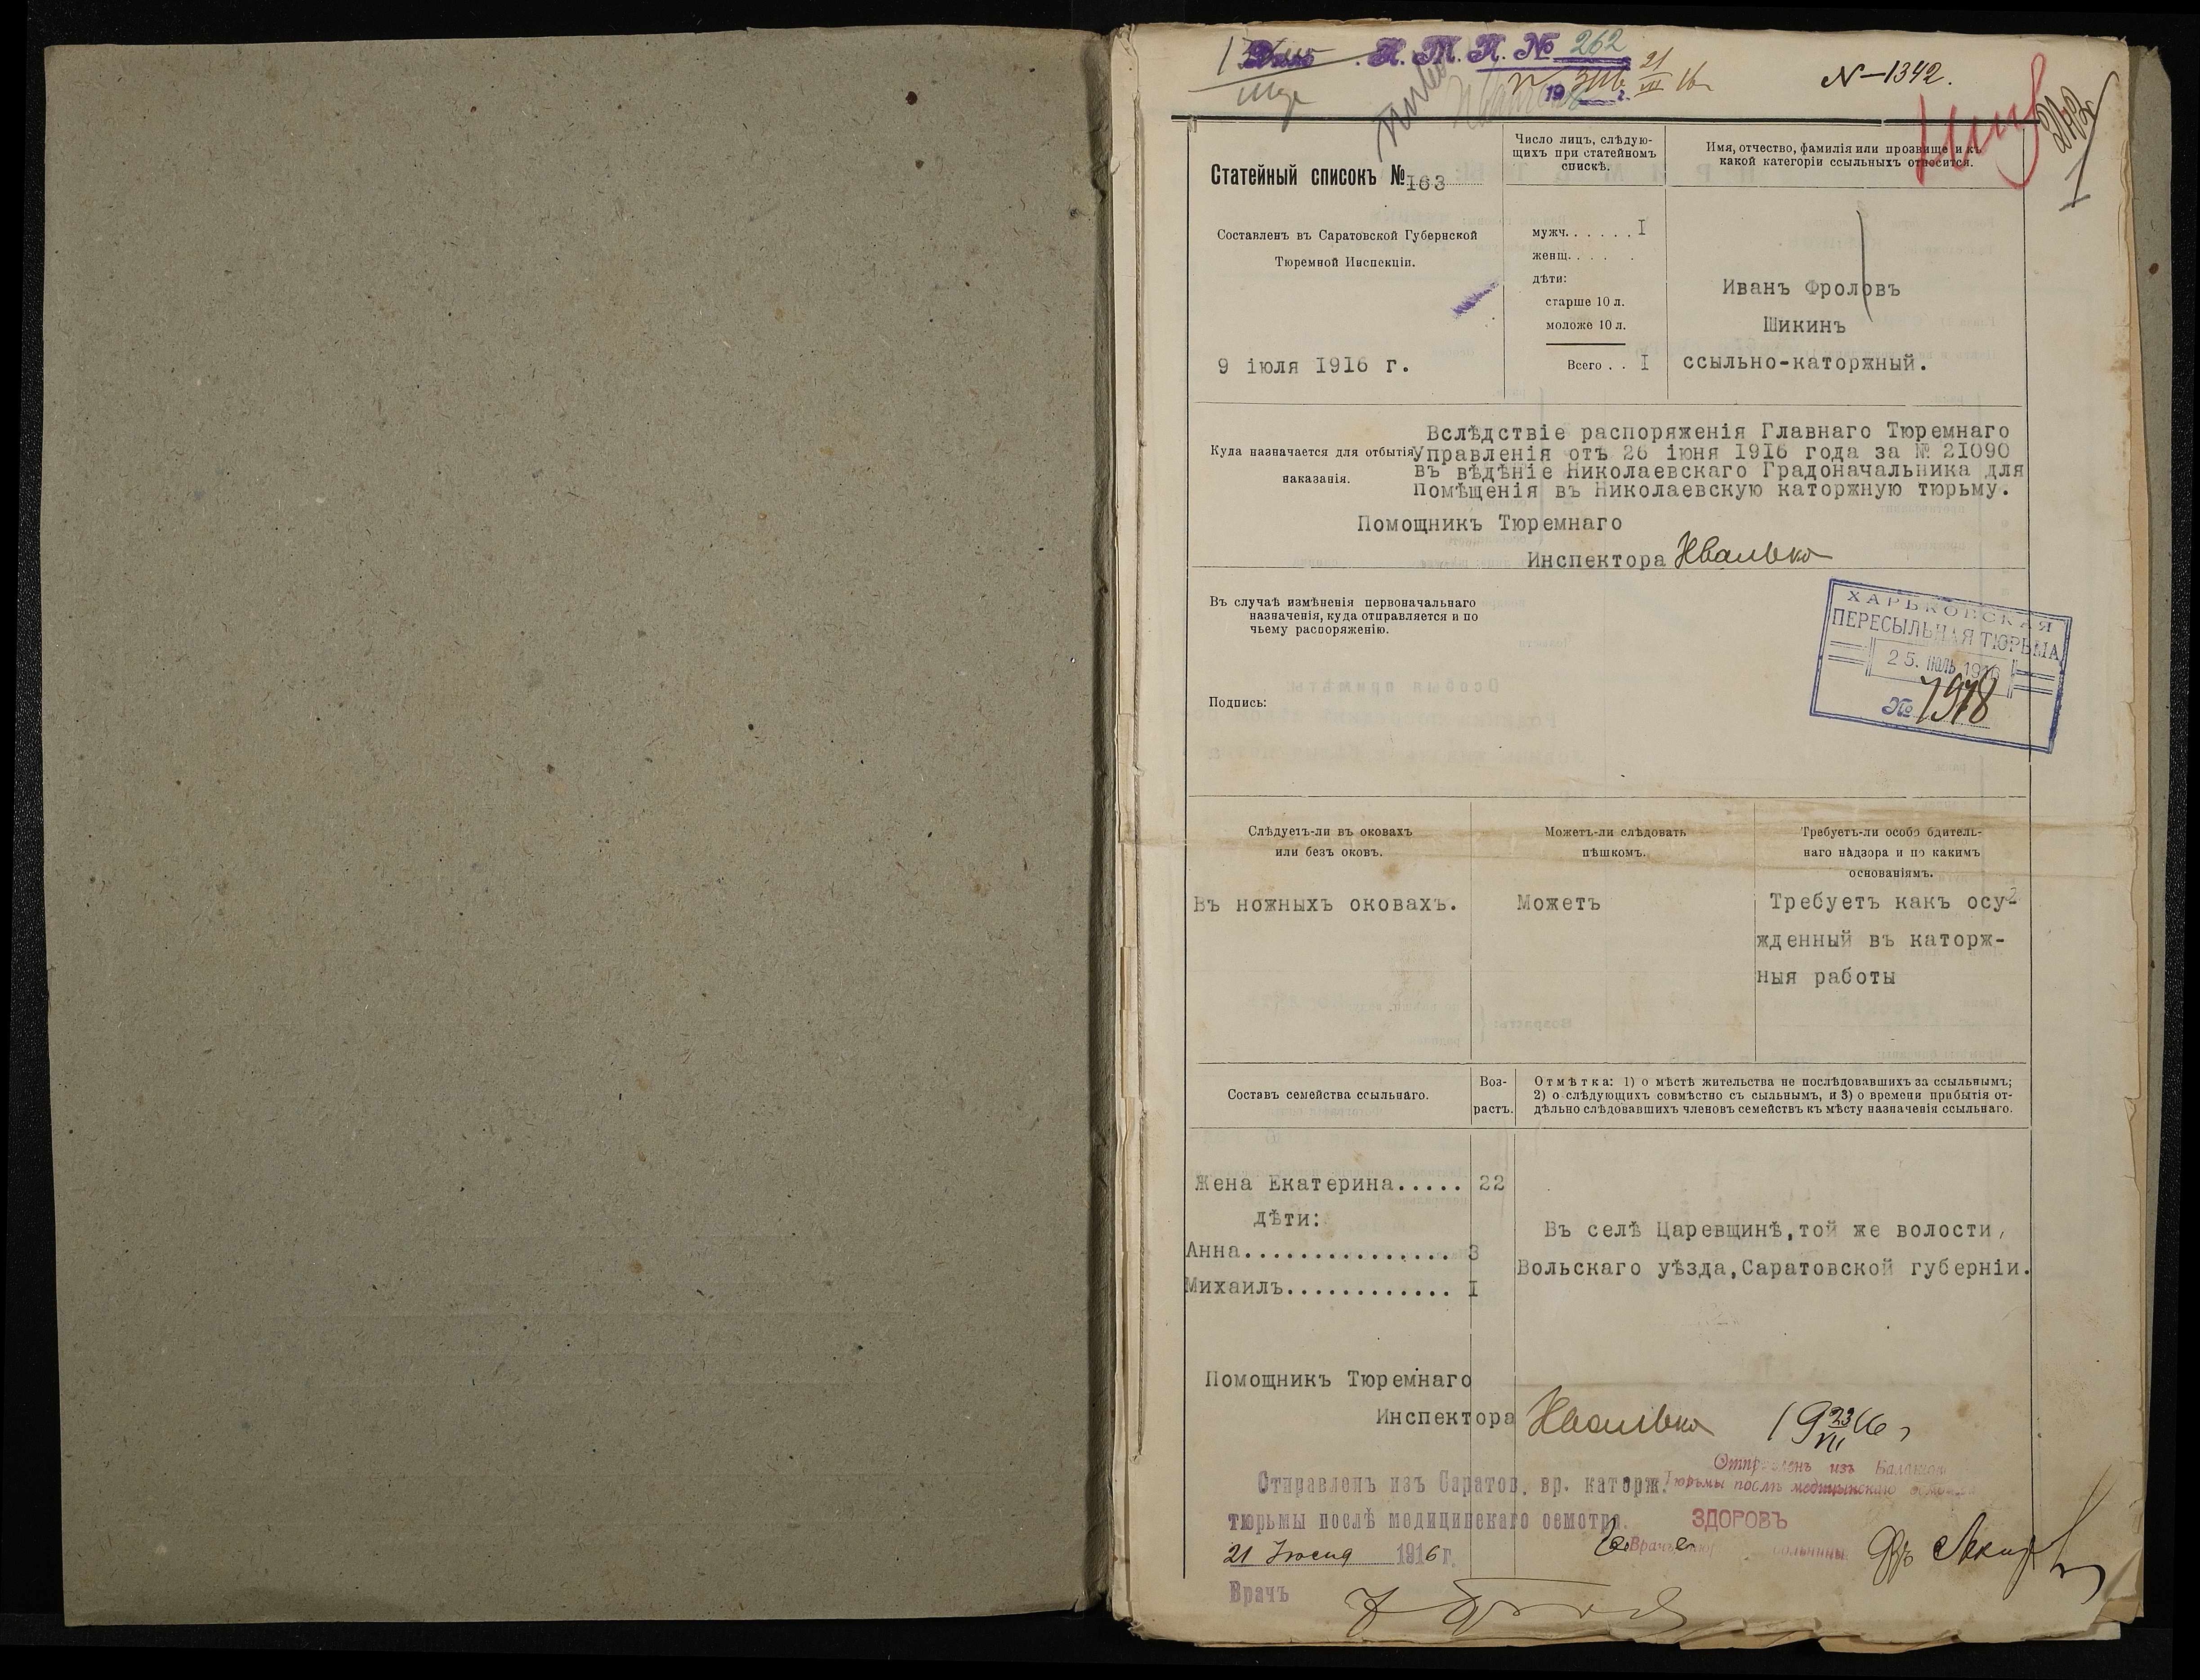 Н. Т. П. № 262
N-1342.
Статейный списокъ № 163
Составленъ въ Саратовской Губернской
Тюремной Инспекціи.
9 іюля 1916 г.
Число лицъ, слѣдую-
щихъ при статейномъ
спискѣ.
мужч. . . . . . I
женщ. . . . .
дѣти:
старше 10 л.
моложе 10 л.
Всего . . I
Имя, отчество, фамилія или прозвище и къ
какой категоріи ссыльныхъ относится.
Иванъ Фроловъ
Шикинъ
ссыльно-каторжный.
Куда назначается для отбытія
наказанія.
Вслѣдствіе распоряженія Главнаго Тюремнаго
Управленія отъ 26 іюня 1916 года за № 21090
въ вѣдѣніе Николаевскаго Градоначальника для
Помѣщенія въ Николаевскую каторжную тюрьму.
Помощникъ Тюремнаго
Инспектора
Въ случаѣ измѣненія первоначальнаго
назначенія, куда отправляется и по
чьему распоряженію.
Подпись:
ХАРЬКОВСКАЯ
ПЕРЕСЫЛЬНАЯ ТЮРЬМА
25. ІЮЛЬ 1916
№ 7978
Слѣдуетъ-ли въ оковахъ
или безъ оковъ.
Въ ножныхъ оковахъ.
Можетъ-ли слѣдовать
пѣшкомъ.
Можетъ
Требуетъ-ли особо бдитель-
наго надзора и по какимъ
основаніямъ.
Требуетъ какъ осу-
жденный въ каторж-
ныя работы
Составъ семейства ссыльнаго.
Воз-
растъ.
Отмѣтка: 1) о мѣстѣ жительства не послѣдовавшихъ за ссыльнымъ;
2) о слѣдующихъ совмѣстно съ сыльнымъ, и 3) о времени прибытія от-
дѣльно слѣдовавшихъ членовъ семействъ къ мѣсту назначенія ссыльнаго.
Жена Екатерина..... 22
дѣти:
Анна............... 3
Михаилъ............ I
Въ селѣ Царевщинѣ,той же волости,
Вольскаго уѣзда,Саратовской губерніи.
Помощникъ Тюремнаго
Инспектора
19 23/VII 16 г
Отправленъ изъ Саратов. вр. каторж.
тюрьмы послѣ медицинскаго осмотра.
21 Іюля 1916 г.
Врачъ
Отправленъ изъ
Тюрьмы послѣ медицинскаго осмотра
ЗДОРОВЪ
Врачъ больницы